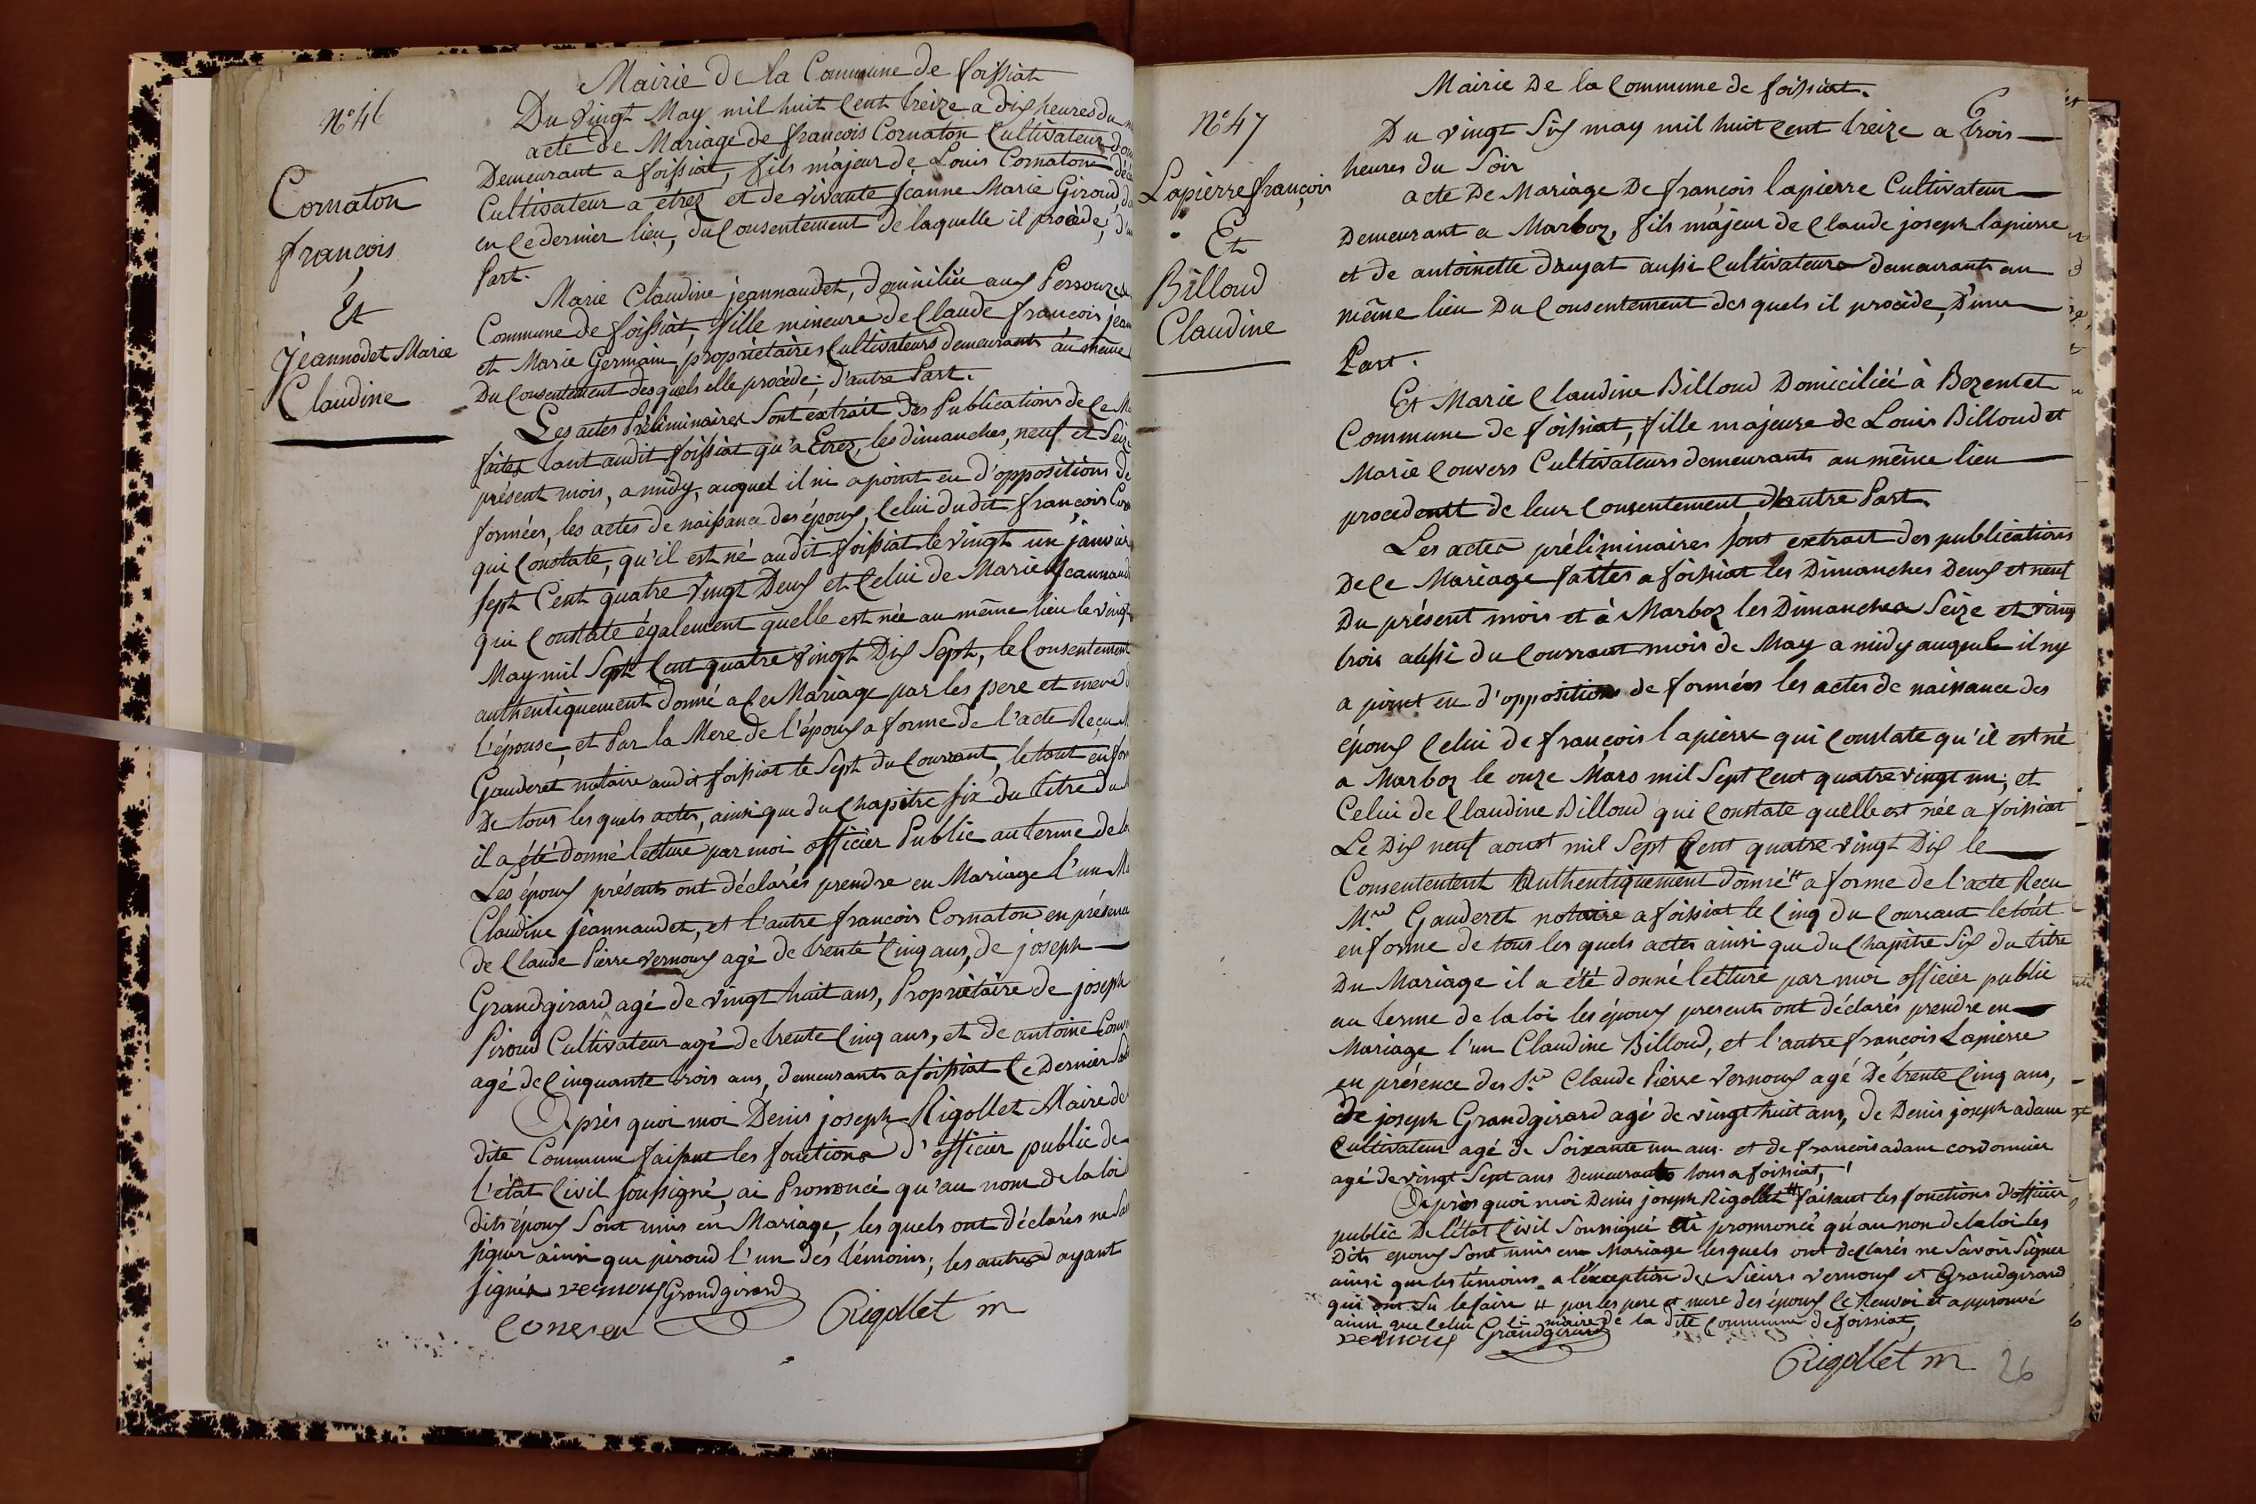 Mairie de la Commune de foissiat
N.º 46
Du vingt May mil huit Cent treize a dix heures du
acte de Mariage de françois Cornaton Cultivateur
Demeurant a foissiat, fils májeur de Louis Cornaton
Cultivateur a etrez et de vivante jeanne Marie Giroud,
en Ce dernier lieu, du Consentement de laquelle il procède,
Part.
Cornaton
françois
Et
Jeannodet Marie
Claudine
Marie Claudine jéannaudet, domiciliée aux
Commune de foissiat, fille mineure de Claude françois
et Marie Germain, propriétaires Cultivateurs demeurants au même
Du Consentement desquels elle procède; d'autre Part.
Les actes Préliminaires Sont éxtrait des Publications de Ce
faites tant audit foissiat qu'a Etrez, les dimanches, neuf et Seize
présent mois, a midy, auquel il ni a point eu d'oppositions de
formées, les actes de naissance des époux, Celui dudit françois
qui Constate, qu'il est né audit foissiat le vingt un janvier
sept Cent quatre vingt Deux et Celui de Marie
qui Constate également quelle est née au même lieu le vingt
May mil Sept Cent quatre vingt Dix Sept, le Consentement
authentiquement donné a Ce Mariage par les pere et mere
l'épouse, et Par la Mere de l'époux a forme de l'acte Reçu
Gauderet notaire audit foissiat le Sept du Courrant, le tout en
De tous lesquels actes, ainsi que du Chapitre six du titre du
il a été donné lecture par moi officier Public au terme de
Les époux présents ont déclarés prendre en Mariage l'un
Claudine jéannaudet, et l'autre françois Cornaton en présence
de Claude Pierre vernoux agé de trente Cinq ans, de joseph
Grandgirard agé de vingt huit ans, Propriétaire de joseph
Piroud Cultivateur agé de trente Cinq ans, et de antoine
agé de Cinquante trois ans, demeurants a foissiat Ce Dernier
Après quoi moi Denis joseph Rigollet Maire de
dite Commune faisant les fonctions d'officier public de
l'état Civil soussigné, ai Prononcé qu'au nom de la loi
dits époux Sont unis en Mariage, les quels ont déclarés ne
signer ainsi que piroud l'un des témoins; les autres ayant
signés vernoux Grandgirard
Rigollet m
Mairie De la Commune de foissiat.
N.º 47
Du vingt Six may mil huit Cent treize a trois
heures du Soir
Lapierre françois
Et
Billoud
Claudine
acte De Mariage De françois lapierre Cultivateur
Demeurant a Marboz, fils májeur de Claude joseph lapierre
et de antoinette daujat aussi Cultivateurs demeurants au
même lieu Du Consentement des quels il procède, D'une
Part.
Et Marie Claudine Billoud Domiciliéé à Bezentet
Commune de foissiat, fille majeure de Louis Billoud et
Marie Convers Cultivateurs demeurants au même lieu
procedentt de leur Consentement d'autre Part.
Les actes préliminaires sont extrait des publications
De Ce Mariage faites a foissiat les Dimanches Deux et neuf
Du présent mois et à Marboz les Dimanches Seize et vingt
trois aussi du Courrant mois de May a midy auquel il ny
a point eu d'oppositions de formées les actes de naissance des
époux Celui de françois lapierre qui Constate qu'il est né
a Marboz le onze Mars mil Sept Cent quatre vingt un; et
Celui de Claudine Billoud qui Constate quelle est née a foissiat
Le Dix neuf aoust mil Sept Cent quatre vingt Dix le
Consententent Authentiquement donné # a forme de l'acte Recu
Mre Gauderet notaire a foissiat le Cinq du Courrant le tout
en forme de tous les quels actes ainsi que du Chapitre Six du titre
Du Mariage il a été donné letture par moi officier public
au terme de la loi les époux presents ont déclarés prendre en
Mariage l'un Claudine Billoud, et l'autre françois Lapierre
en présence des Srs Claude Pierre Vernoux agé De trente Cinq ans,
de joseph Grandgirard agé de vingt huit ans, de Denis joseph adam
Cultivateur agé de Soixante un ans. et de françois adam cordonnier
agé de vingt Sept ans Demeurants tous a foissiat,
Après quoi moi Denis joseph Rigollet # faisant les fonctions d'officier
public De l'état Civil Soussigné ai prononcé qu'au nom de la loi les
Dits epoux Sont unis en Mariage lesquels ont declarés ne Savoir Signer
ainsi que les témoins a l'exception des Sieurs vernoux et Grandgirard
qui ont Su le faire # par les pere et mere des époux Ce Renvoi et approuvé
ainsi que Celui # maire de la dite Commune de foissiat,
vernoux Grandgirard
Rigollet m
26